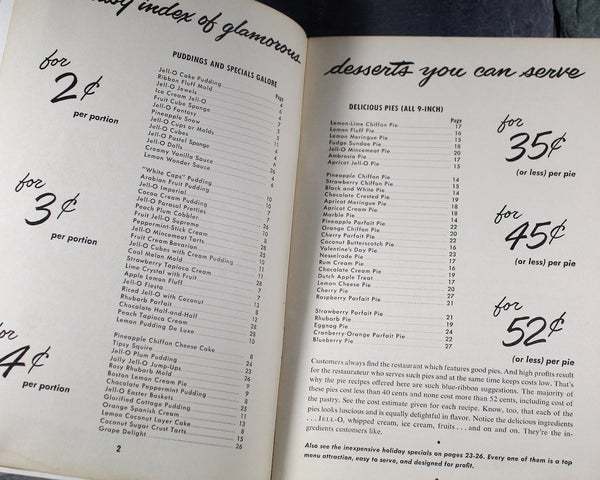 easy index of glamorous
PUDDINGS AND SPECIALS GALORE
Page
for
2¢
per portion
Jell-O Cake Pudding
Ribbon Fluff Mold
Jell-O Jewels
Ice Cream Jell-O
Fruit Cube Sponge
Jell-O Fantasy
Pineapple Snow
Jell-O Cups or Molds
Jell-O Cubes
Jell-O Pastel Sponge
Jell-O Dolls
Creamy Vanilla Sauce
Lemon Wonder Sauce
for
3¢
per portion
"White Caps" Pudding
Arabian Fruit Pudding
Jell-O Imperial
Cocoa Cream Pudding
Jell-O Parasol Parties
Peach Plum Cobbler
Fruit Jell-O Supreme
Peppermint-Stick Cream
Jell-O Mincemeat Tarts
Fruit Cream Bavarian
Jell-O Cubes with Cream Pudding
Cool Melon Mold
Strawberry Tapioca Cream
Lime Crystal with Fruit
Apple Lemon Fluff
Jell-O Fiesta
Riced Jell-O with Coconut
Rhubarb Parfait
Chocolate Half-and-Half
Peach Tapioca Cream
Lemon Pudding De Luxe
for
4¢
per portion
Pineapple Chiffon Cheese Cake
Tipsy Squire
Jell-O Plum Pudding
Jolly Jell-O Jump-Ups
Rosy Rhubarb Mold
Boston Lemon Cream Pie
Chocolate Peppermint Pudding
Jell-O Easter Baskets
Glorified Cottage Pudding
Orange Spanish Cream
Lemon Coconut Layer Cake
Coconut Sugar Crust Tarts
Grape Delight
2
desserts you can serve
DELICIOUS PIES (ALL 9-INCH)
Page
Lemon-Lime Chiffon Pie 17
Lemon Fluff Pie 16
Lemon Meringue Pie 15
Fudge Sundae Pie 18
Jell-O Mincemeat Pie 20
Ambrosia Pie 17
Apricot Jell-O Pie 15
for
35¢
(or less) per pie
Pineapple Chiffon Pie 14
Strawberry Chiffon Pie
Black and White Pie
Chocolate Crested Pie
Apricot Meringue Pie
Apricot Cream Pie
Marble Pie
Pineapple Parfait Pie
Orange Chiffon Pie
Cherry Parfait Pie
Coconut Butterscotch Pie
Valentine's Day Pie
Nesselrode Pie
Rum Cream Pie
Chocolate Cream Pie
Dutch Apple Treat
Lemon Cheese Pie
Cherry Pie
Raspberry Parfait Pie
for
45¢
(or less) per pie
Strawberry Parfait Pie 21
Rhubarb Pie 19
Eggnog Pie 24
Cranberry-Orange Parfait Pie 22
Blueberry Pie 27
for
52¢
(or less) per pie
Customers always find the restaurant which features good pies. And high profits result
for the restaurateur who serves such pies and at the same time keeps costs low. That's
why the pie recipes offered here are such blue-ribbon suggestions. The majority of
these pies cost less than 40 cents and none cost more than 52 cents, including cost of
the pastry. See the cost estimate given for each recipe. Know, too, that each of the
pies looks luscious and is equally delightful in flavor. Notice the delicious ingredients
. . . JELL-O, whipped cream, ice cream, fruits . . . and on and on. They're the in-
gredients customers like.
Also see the inexpensive holiday specials on pages 23-26. Every one of them is a top
menu attraction, easy to serve, and designed for profit.